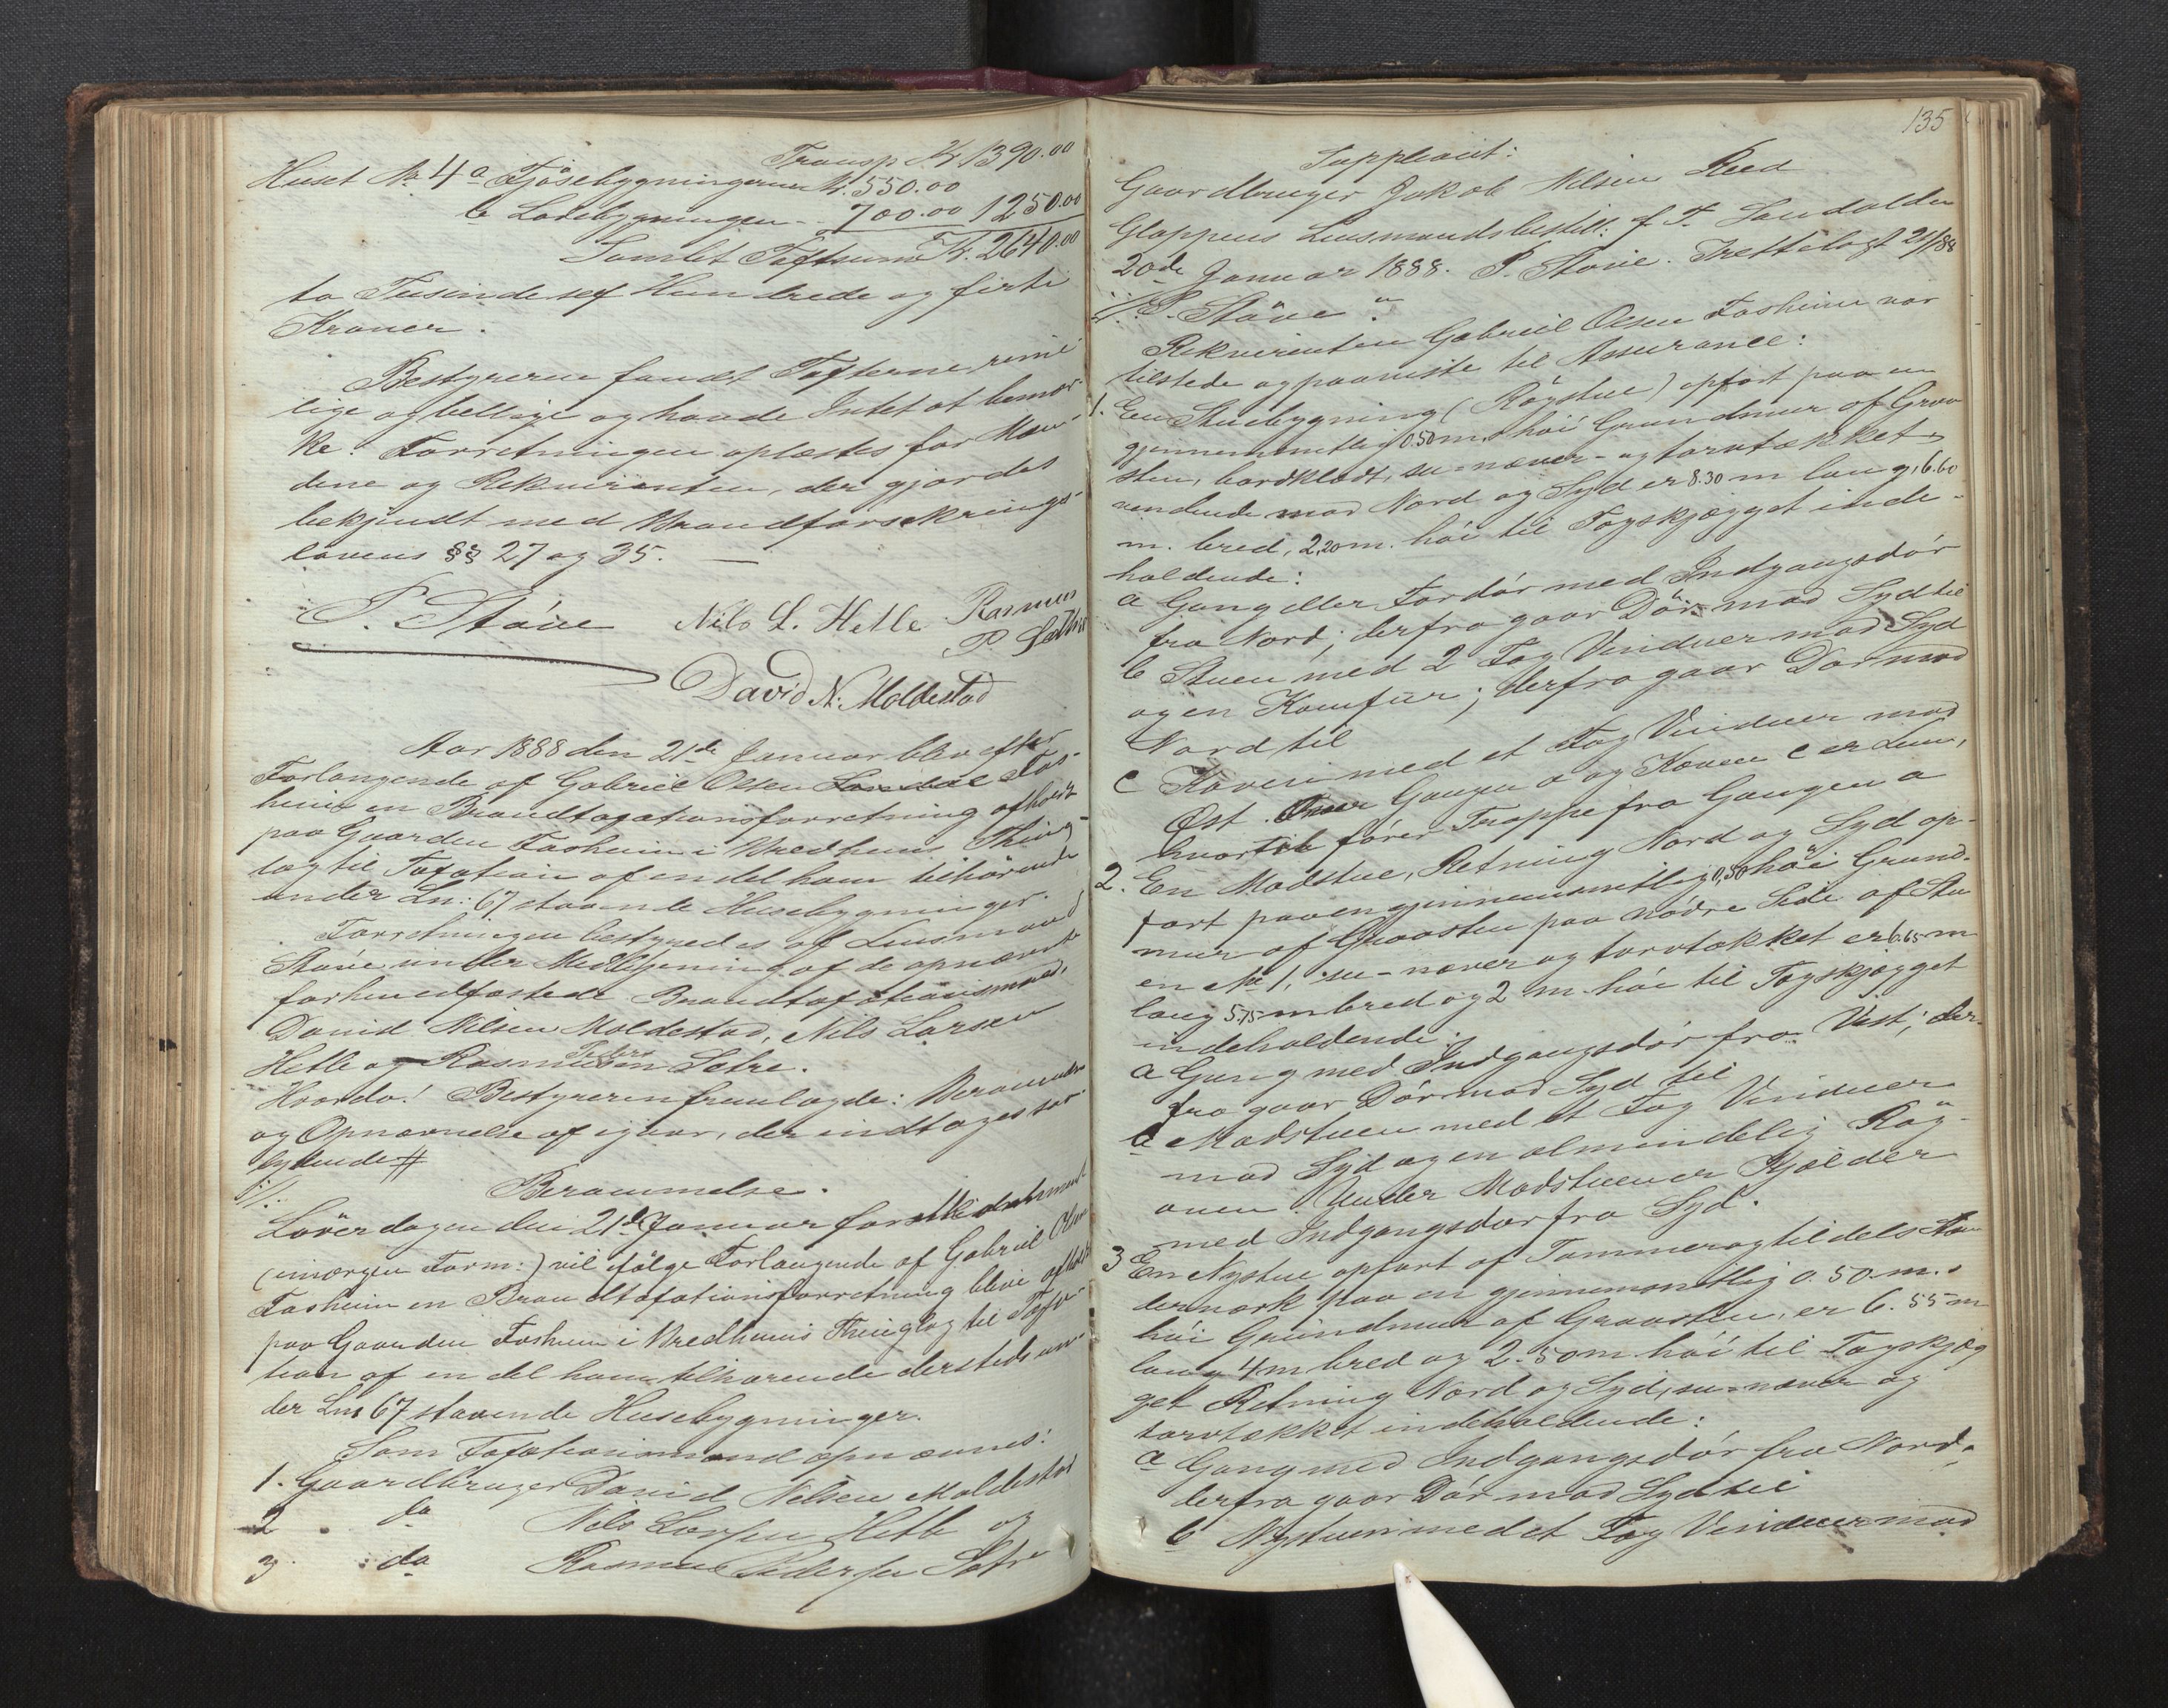 Transp Kr. 1390.00
Huset No 4 a Fjösebygningerne Kr. 550.00
b Ladebygningen - 700.00 1250.00
Samlet Taxtsum Kr. 2640.00
to Tusinde sex Hundrede og firti
Kroner.
Bestyreren fandt Taxterne rime
lige og billige og havde Intet at bemær-
ke. Forretningen oplæstes for Mæn-
dene og Rekvirenten, der gjordes
bekjendt med Brandforsikrings-
lovens §§ 27 og 35. —
P. Stöve Nils L. Hetle Rasmus
P. Sætre
David N. Moldestad
Aar 1888 den 21de Januar blev efter
Forlangende af Gabriel Olsen Fos-
heim en Brandtaxationsforretning afholdt
paa Gaarden Fosheim i Bredheims Thing-
lag til Taxation af en del ham tilhörende
under Ln: 67 staaende Husebygninger.
Forretningen bestyredes af Lensmand
Stöve under Medbetjening af de opnævnte
forhenedfæstede Brandtaxationsmænd,
David Nilsen Moldestad, Nils Larsen
Hetle og Rasmus Peders
en Sætre.
Hvorda! Bestyreren fremlagde: Berammelse
og Opnævnelse af igaar, der indtages saa-
lydende #
:/:
Berammelse.
Löverdagen den 21de Januar förstkommende
(imorgen Form:) vil ifölge Forlangende af Gabriel Olsen
Fosheim en Brandtaxationsforretning blive afholdt
paa Gaarden Fosheim i Bredheims Thinglag til Taxa-
tion af en del ham tilhörende dersteds un-
der Lno 67 staaende Husebygninger.
Som Taxationsmænd opnævnes:
1. Gaardbruger David Nilsen Moldestad
2 do Nils Larsen Hetle og
3. do Rasmus Pedersen Sætre
135
Suppleant:
Gaardbruger Jakob Nilsen Reed
Gloppens Lensmandsbestill: f. T. Sandalden
20de Januar 1888. P. Stöve. Fretteligt 21/1 88
:/: P. Stöve".
Rekvirenten Gabriel Olsen Fosheim var
tilstede og paaviste til Assurance:
1. En Stuebygning (Rögstue) opfört paa en
gjennemsnitlig 0.50 m. höi Grundmur af Graa
sten, bordklædt, su-næver- og torvtækket
vendende mod Nord og Syd er 8.30 m lang, 6.60
m. bred, 2,20 m. höi til Tagskjægget inde-
holdende:
a Gang eller Fordör med Indgangsdör
fra Nord; derfra gaar Dör mod Syd til
b Stuen med 2 Fag Vinduer mod Syd
og en Komfür; derfra gaar Dör mod
Nord til
c Koven med et Fag Vinduer mod
Öst. Over Gangen a og Koven c er Lem,
hvortil förer Trappe fra Gangen a
2. En Madstue, Retning Nord og Syd op-
fört paa en gjennemsnitlig 0,50 höi Grund-
mur af Graasten paa nödre Side af Stu
en No 1, su-næver og torvtækket er 6.65 m
lang 5.75 m bred og 2 m. höi til Tagskjægget
indeholdende:
a Gang med Indgangsdör fra Vest; der-
fra gaar Dör mod Syd til
b Madstuen med et Fag Vinduer
mod Syd og en almindelig Rög-
oven. Under Madstuen er Kjælder
med Indgangsdör fra Syd.
3 En Nystue opfört af Tømmer og tildels Stav
dernærk paa en gjennemsnitlig 0.50 m.
höi Grundmur af Graasten, er 6.55 m
lang 4 m bred og 2.50 m höi til Tagskjæg
get Retning Nord og Syd, su-næver og
torvtækket indeholdende:
a Gang med Indgangsdör fra Nord,
derfra gaar Dör mod Syd til
b Nystuen med et Fag Vinduer mod